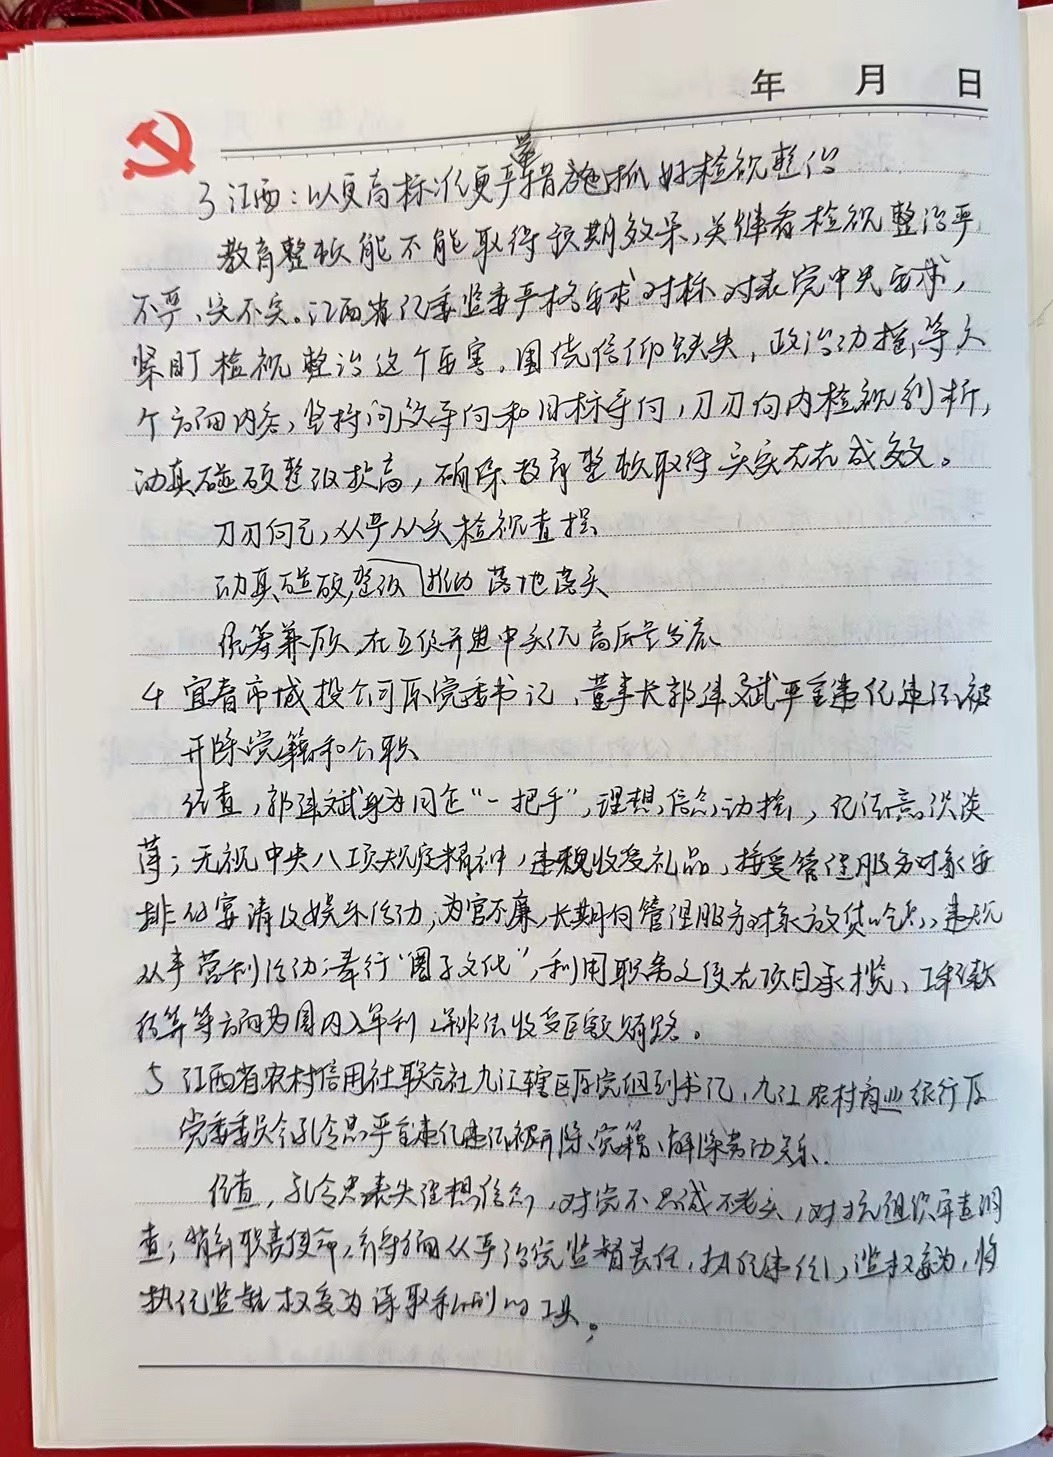 年 月 日
3 江西：以更高标准更严措施抓好检视整治
教育整顿能不能取得预期效果，关键看检视整治严
不严、实不实。江西省纪委监委严格要求对标对表党中央要求，
紧盯检视整治这个要害，围绕信仰缺失，政治动摇等六
个方面内容，坚持问题导向和目标导向，刀刃向内检视剖析，
动真碰硬整改提高，确保教育整顿取得实实在在成效。
刀刃向己，从严从实检视查摆
动真碰硬，整改推动落地落实
统筹兼顾，在互促并进中实现高质量发展
4 宜春市城投公司原党委书记、董事长郭建斌严重违纪违法被
开除党籍和公职
经查，郭建斌身为国企“一把手”，理想信念动摇，纪法意识淡
薄；无视中央八项规定精神，违规收受礼品，接受管理服务对象安
排的宴请及娱乐活动；为官不廉，长期向管理服务对象放贷吃息，违规
从事营利活动；奉行“圈子文化”，利用职务之便在项目承揽、工程款
结算等方面为 人牟利，并非法收受巨额贿赂。
5 江西省农村信用社联合社九江辖区原党组副书记、九江农村商业银行原
党委委员 孔令忠严重违纪违法被开除党籍、解除劳动关系.
经查，孔令忠丧失理想信念，对党不忠诚不老实，对抗组织审查调
查；背弃职责使命， 从严治党监督责任，执纪违纪，滥权妄为，将
执纪监督权变为谋取私利的工具。